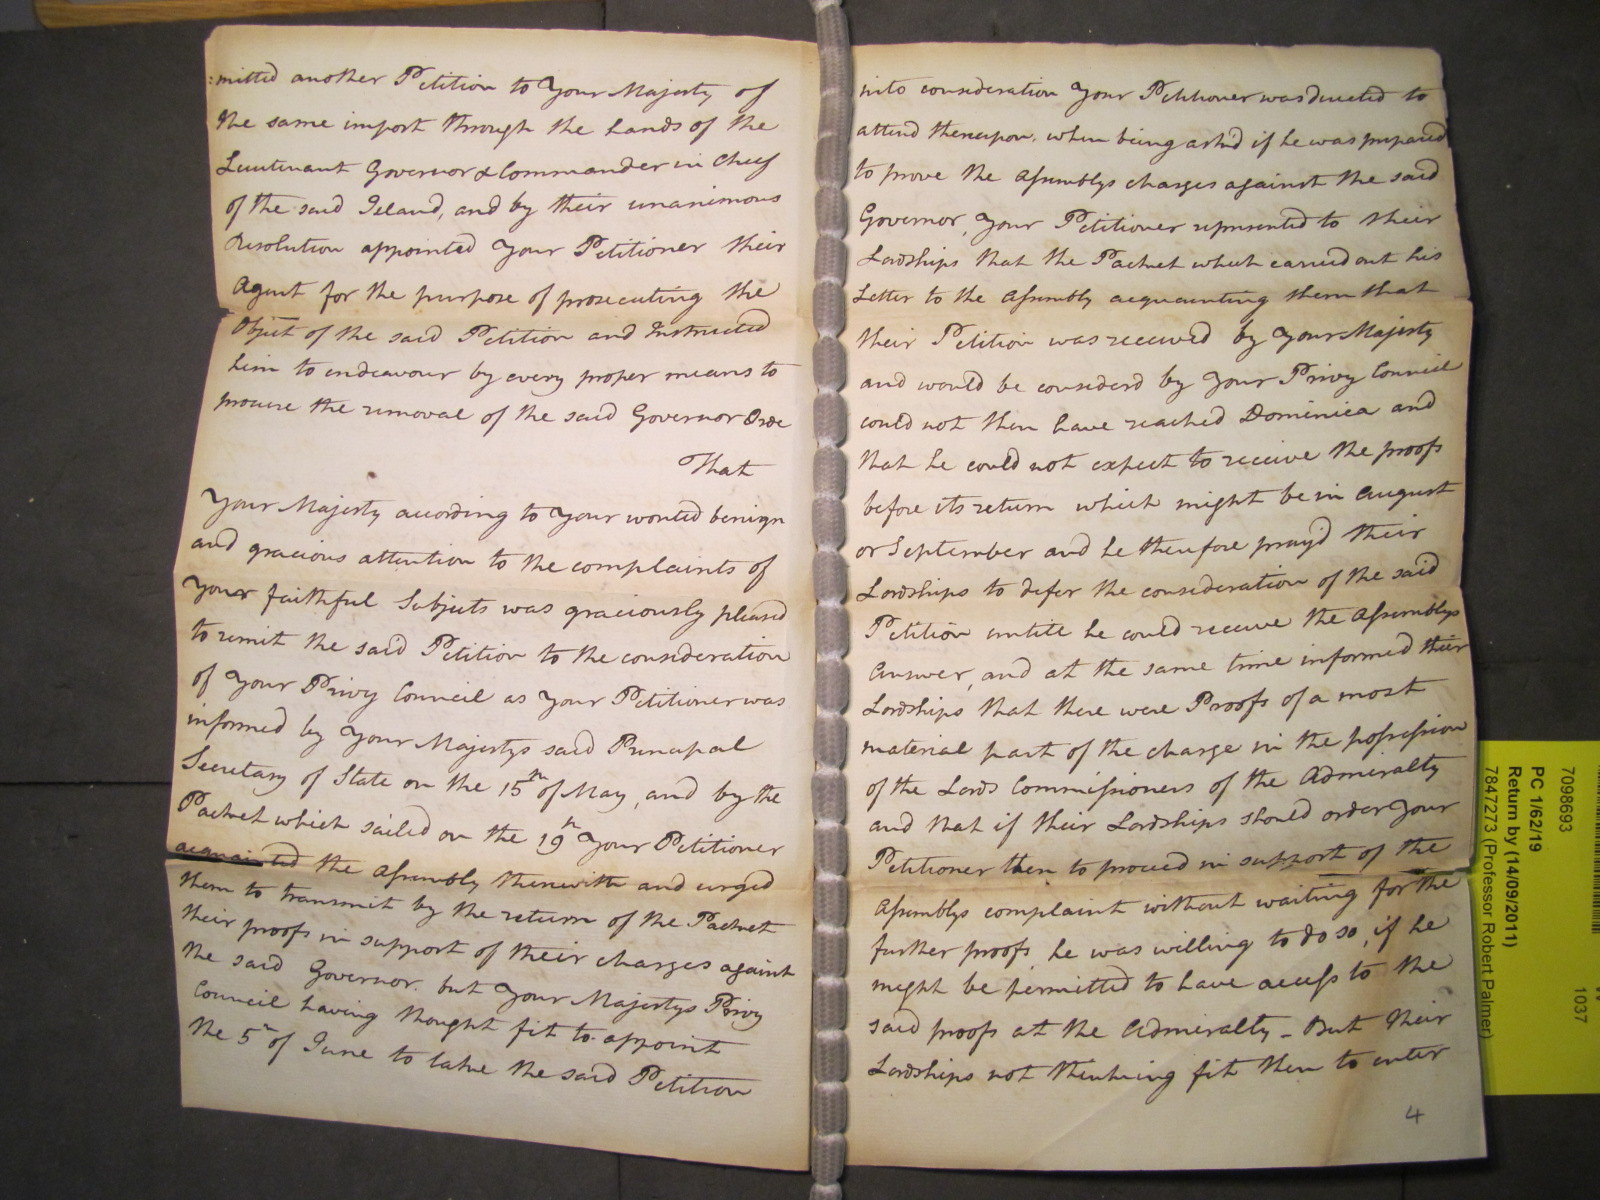 :mitted another Petition to Your Majesty of
the same import through the hands of the
Lieutenant Governor & Commander in Chief
of the said Island, and by their unanimous
Resolution appointed Your Petitioner their
Agent for the purpose of prosecuting the
Object of the said Petition and Instructed
him to endeavour by every proper means to
procure the removal of the said Governor Orde
That
Your Majesty according to Your wonted benign
and gracious attention to the complaints of
Your faithful Subjects was graciously pleased
to remit the said Petition to the consideration
of Your Privy Council as Your Petitioner was
informed by Your Majestys said Principal
Secretary of State on the 15th of May, and by the
Packet which sailed on the 19th Your Petitioner
acquainted the Assembly therewith and urged
them to transmit by the return of the Packet
their proofs in support of their charges against
the said Governor. but Your Majestys Privy
Council having thought fit to appoint
the 5th of June to take the said Petition
into consideration Your Petitioner was directed to
attend thereupon. when being ask'd if he was prepared
to prove the Assemblys charges against the said
Governor, Your Petitioner represented to their
Lordships that the Packet which carried out his
Letter to the Assembly acquainting them that
their Petition was received by Your Majesty
and would be considerd by Your Privy Council
could not then have reached Dominica and
that he could not expect to receive the proofs
before its return which might be in August
or September and he therefore pray'd their
Lordships to defer the consideration of the said
Petition untill he could receive the Assemblys
Answer, and at the same time informed their
Lordships that there were Proofs of a most
material part of the charge in the possession
of the Lords Commissioners of the Admiralty
and that if their Lordships should order Your
Petitioner then to proceed in support of the
Assemblys complaint without waiting for the
further proofs he was willing to do so, if he
might be permitted to have access to the
said proofs at the Admiralty - But their
Lordships not thinking fit then to enter
4
7098693
1037
PC 1/62/19
Return by (14/09/2011)
7847273 (Professor Robert Palmer)